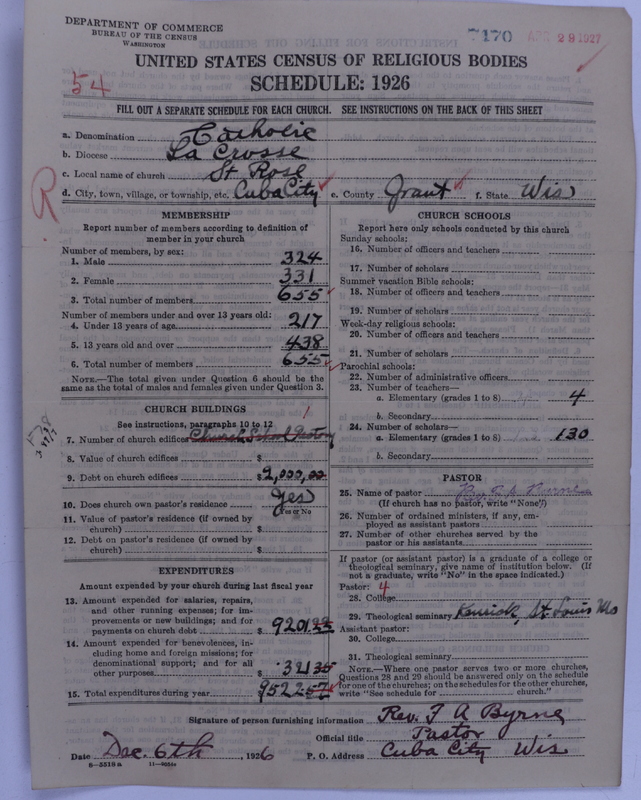 DEPARTMENT OF COMMERCE
BUREAU OF THE CENSUS
WASHINGTON
7170 APR 29 1927
UNITED STATES CENSUS OF RELIGIOUS BODIES
SCHEDULE: 1926
54
FILL OUT A SEPARATE SCHEDULE FOR EACH CHURCH. SEE INSTRUCTIONS ON THE BACK OF THIS SHEET
a. Denomination Catholic
b. Diocese La Crosse
c. Local name of church St Rose
d. City, town, village, or township, etc. Cuba City e. County Grant f. State Wis
R
MEMBERSHIP
Report number of members according to definition of
member in your church
Number of members, by sex:
1. Male 324
2. Female 331
3. Total number of members 655
Number of members under and over 13 years old:
4. Under 13 years of age 217
5. 13 years old and over 438
6. Total number of members 655
NOTE.—The total given under Question 6 should be the
same as the total of males and females given under Question 3.
CHURCH BUILDINGS
See instructions, paragraphs 10 to 12
1
7. Number of church edifices Church School Rectory
8. Value of church edifices $
9. Debt on church edifices $2,000,00
10. Does church own pastor's residence Yes
Yes or No
11. Value of pastor's residence (if owned by
church) $
12. Debt on pastor's residence (if owned by
church) $
EXPENDITURES
Amount expended by your church during last fiscal year
13. Amount expended for salaries, repairs,
and other running expenses; for im-
provements or new buildings; and for
payments on church debt $ 9201.22
14. Amount expended for benevolences, in-
cluding home and foreign missions; for
denominational support; and for all
other purposes 321 35
15. Total expenditures during year 9522 57
CHURCH SCHOOLS
Report here only schools conducted by this church
Sunday schools:
16. Number of officers and teachers
17. Number of scholars
Summer vacation Bible schools:
18. Number of officers and teachers
19. Number of scholars
Week-day religious schools:
20. Number of officers and teachers
21. Number of scholars
Parochial schools:
22. Number of administrative officers
23. Number of teachers—
a. Elementary (grades 1 to 8) 4
b. Secondary
24. Number of scholars—
a. Elementary (grades 1 to 8) 130
b. Secondary
PASTOR
25. Name of pastor Rev F A Byrne
(If church has no pastor, write "None")
26. Number of ordained ministers, if any, em-
ployed as assistant pastors
27. Number of other churches served by the
pastor or his assistants
If pastor (or assistant pastor) is a graduate of a college or
theological seminary, give name of institution below. (If
not a graduate, write "No" in the space indicated.)
Pastor: 4
28. College
29. Theological seminary Kenrick, St. Louis Mo
Assistant pastor:
30. College
31. Theological seminary
NOTE.—Where one pastor serves two or more churches,
Questions 28 and 29 should be answered only on the schedule
for one of the churches; on the schedules for the other churches,
write "See schedule for church."
Signature of person furnishing information Rev. F A Byrne
Official title Pastor
Date Dec. 6th, 1926 P. O. Address Cuba City Wis
8-5518a 11-90544